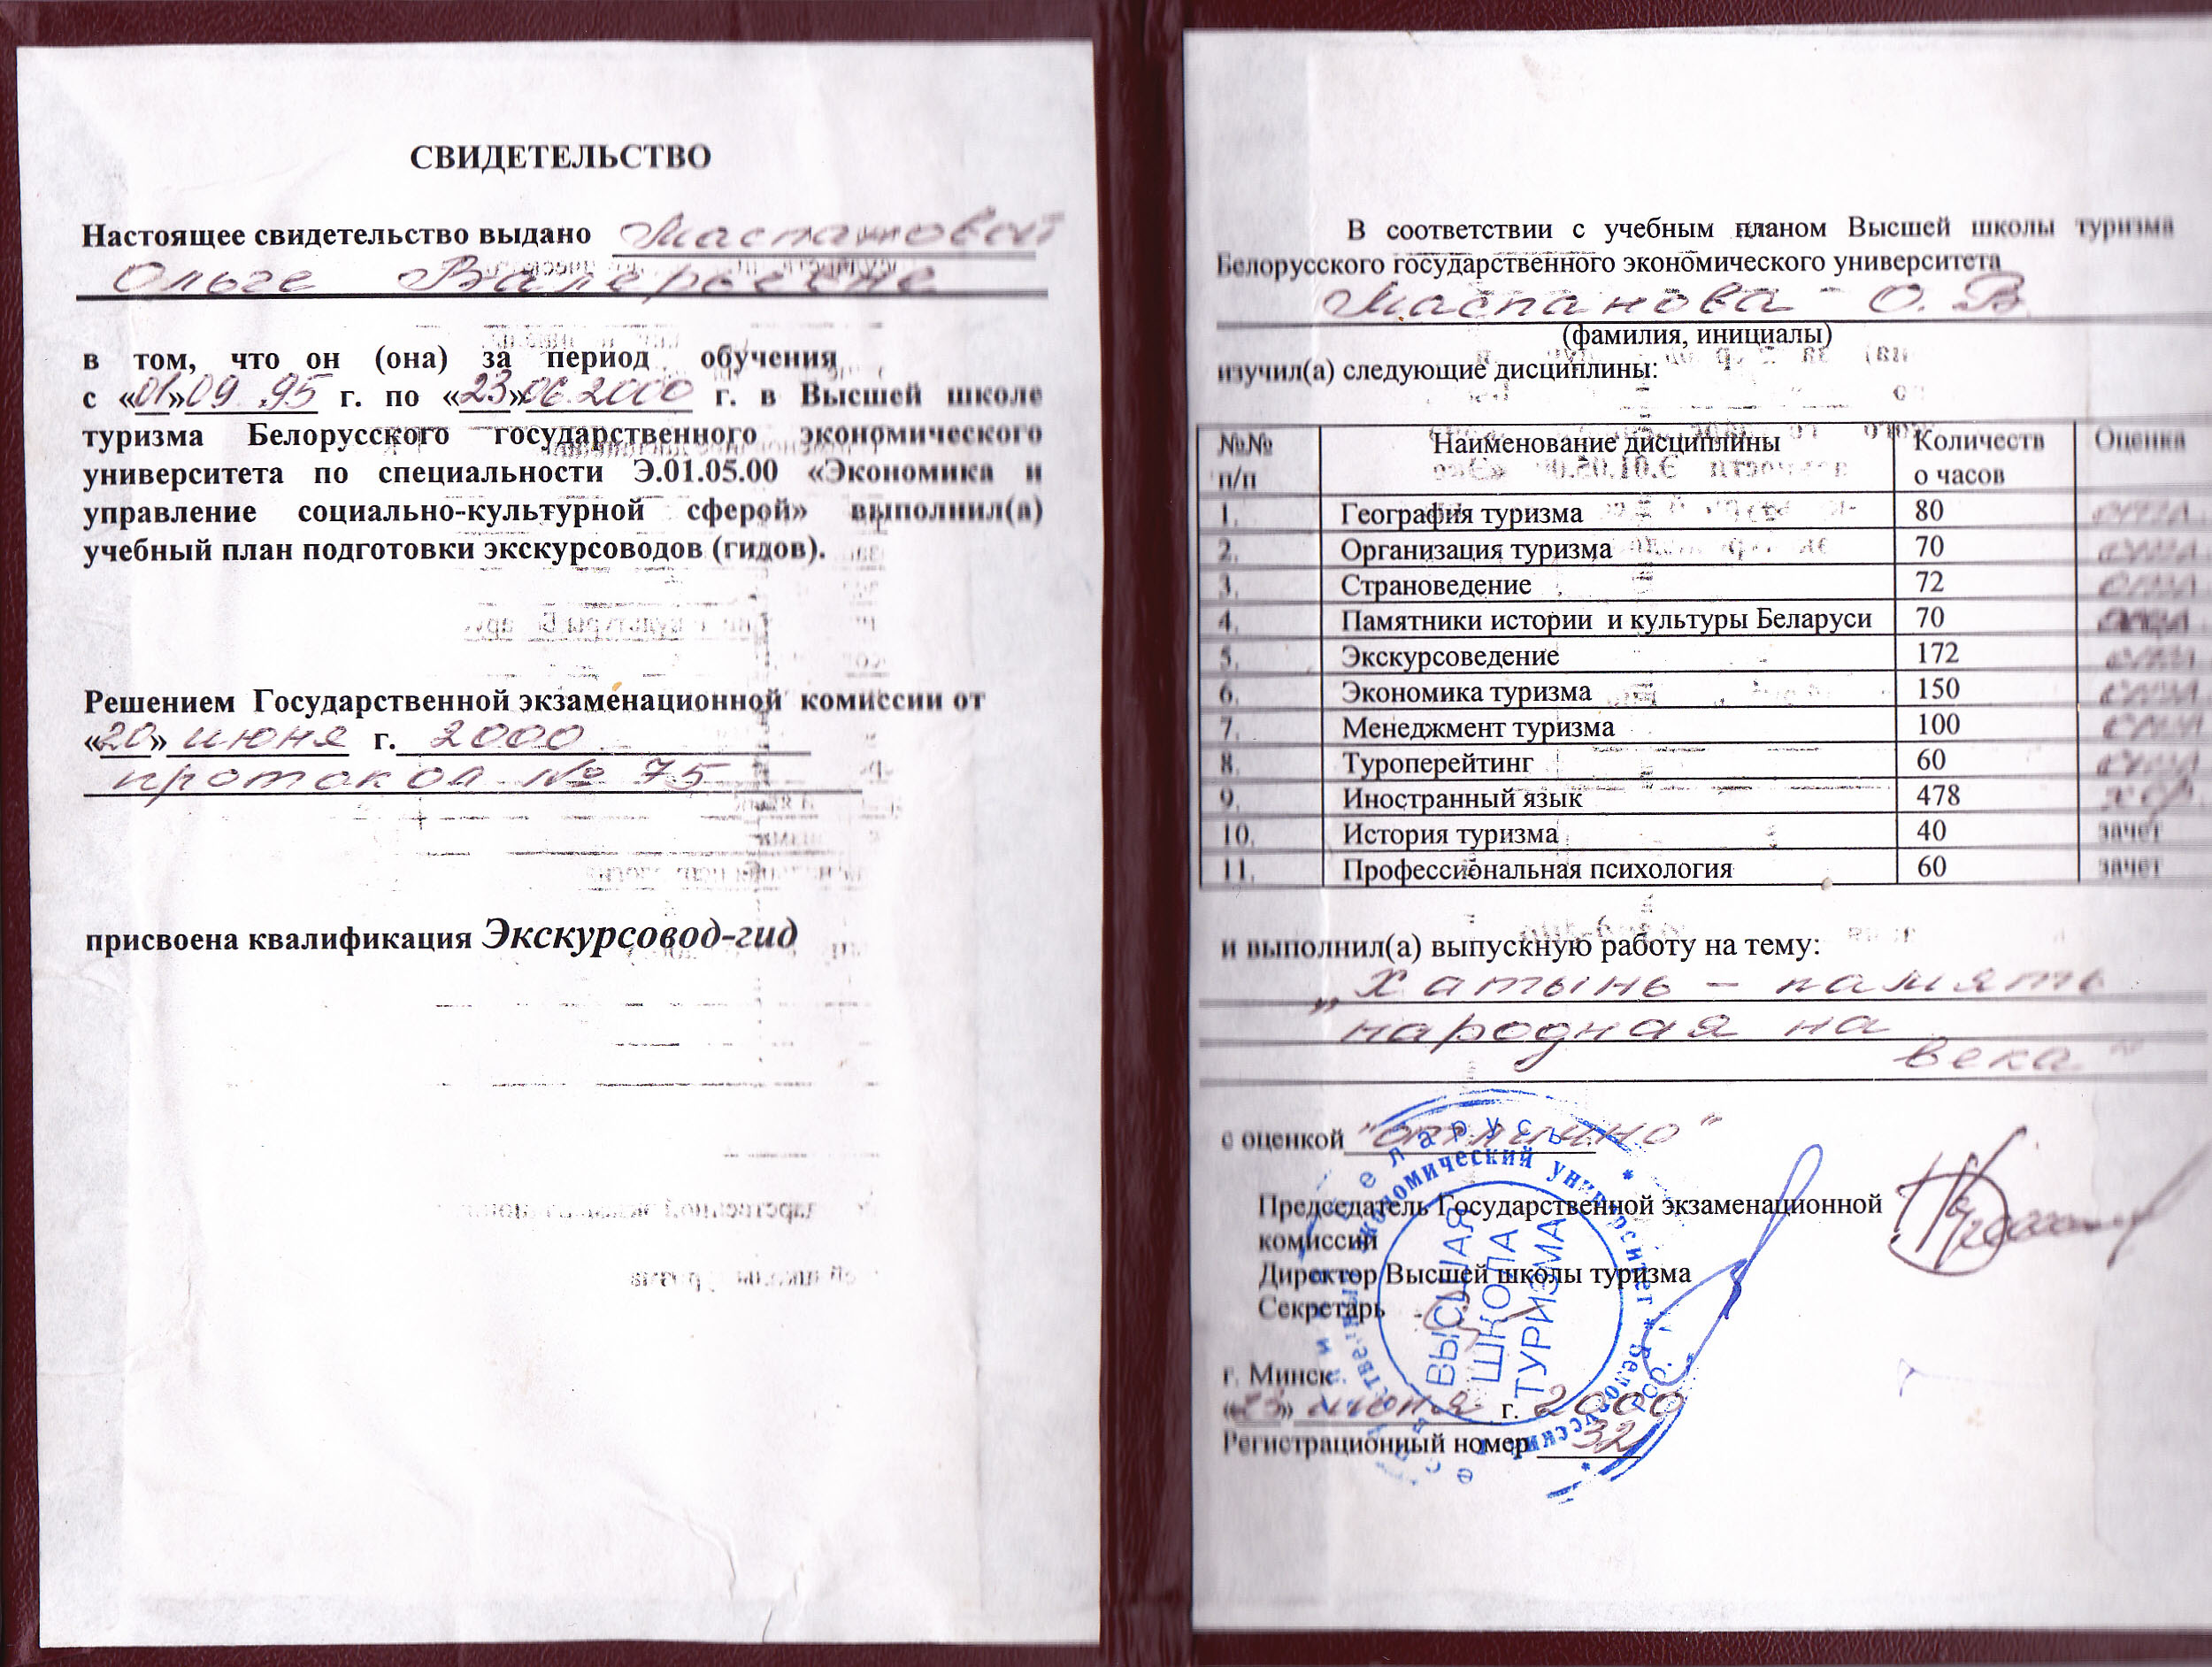 СВИДЕТЕЛЬСТВО
Настоящее свидетельство выдано Маспановой
Ольге Валерьевне
в том, что он (она) за период обучения
с «01» 09.95 г. по «23» 06.2000 г. в Высшей школе
туризма Белорусского государственного экономического
университета по специальности Э.01.05.00 «Экономика и
управление социально-культурной сферой» выполнил(а)
учебный план подготовки экскурсоводов (гидов).
Решением Государственной экзаменационной комиссии от
«20» июня г. 2000
протокол № 75
присвоена квалификация Экскурсовод-гид
В соответствии с учебным планом Высшей школы туризма
Белорусского государственного экономического университета
Маспанова О. В.
(фамилия, инициалы)
изучил(а) следующие дисциплины:
№№ Наименование дисциплины Количеств Оценка
п/п о часов
1. География туризма 80
2. Организация туризма 70
3. Страноведение 72
4. Памятники истории и культуры Беларуси 70
5. Экскурсоведение 172
6. Экономика туризма 150
7. Менеджмент туризма 100
8. Туроперейтинг 60
9. Иностранный язык 478 хор.
10. История туризма 40 зачет
11. Профессиональная психология 60 зачет
и выполнил(а) выпускную работу на тему:
„Хатынь – память
народная на
века"
с оценкой "отлично"
Председатель Государственной экзаменационной
комиссии
Директор Высшей школы туризма
Секретарь
ВЫСШАЯ
ШКОЛА
ТУРИЗМА
г. Минск
«23» июня г. 2000
Регистрационный номер 32